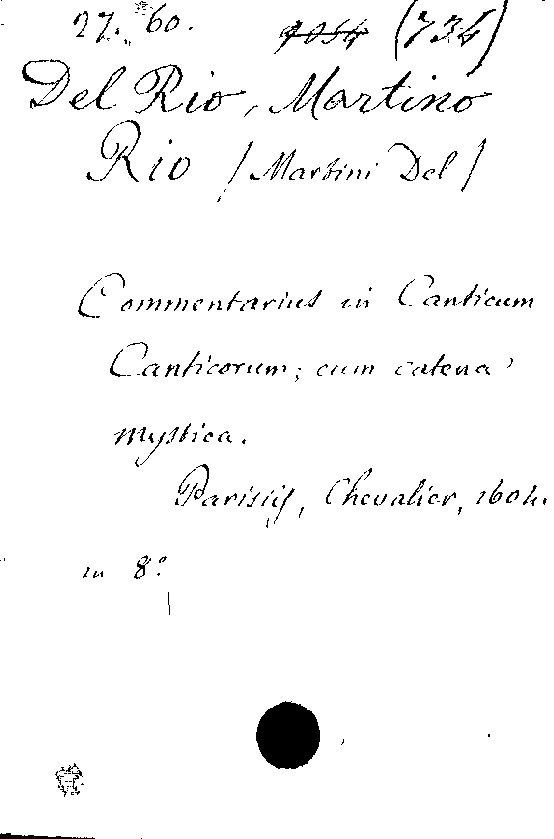 27. 60. 4054 (734)
Del Rio, Martino
Rio (Martini Del)
Commentarius in Canticum
Canticorum; cum catena
mystica.
Parisiis, Chevalier, 1604.
in 8°